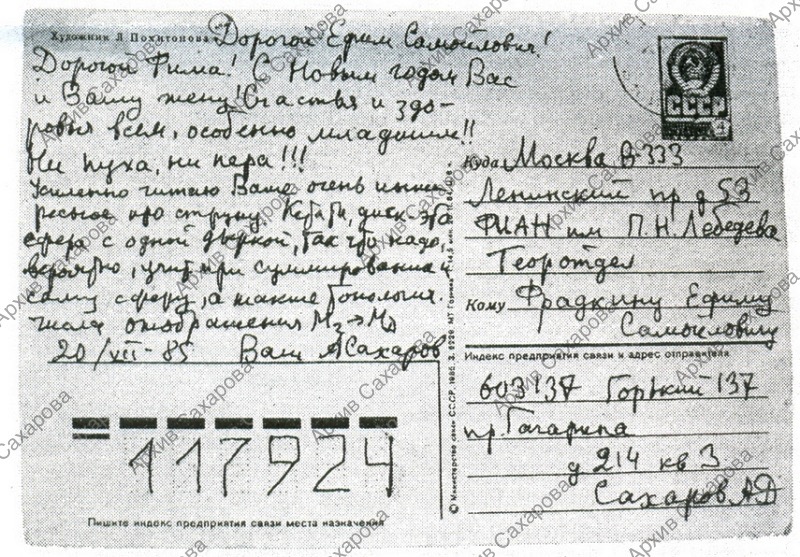 Художник Л Похитонова
Дорогой Ефим Самойлович!
Дорогой Фима! С Новым годом Вас
и Вашу жену! Счастья и здо-
ровья всем, особенно младшим!!
Ни пуха, ни пера!!!
Усиленно читаю Ваше очень инте-
ресное про струну. Кстати, диск - это
сфера с одной дыркой, так что надо,
вероятно, учит. при суммировании и
саму сферу, а также топологич.
числа отображения M₂→M
20/VII-85 Ваш А Сахаров
СССР
Куда Москва В-333
Ленинский пр д 53
ФИАН им П.Н. Лебедева
Теоротдел
Кому Фрадкину Ефиму
Самойловичу
Индекс предприятия связи и адрес отправителя
603137 Горький 137
пр. Гагарина
д 214 кв 3
Сахаров АД
117924
Пишите индекс предприятия связи места назначения
© Министерство связи СССР, 1985. З.
Архив Сахарова